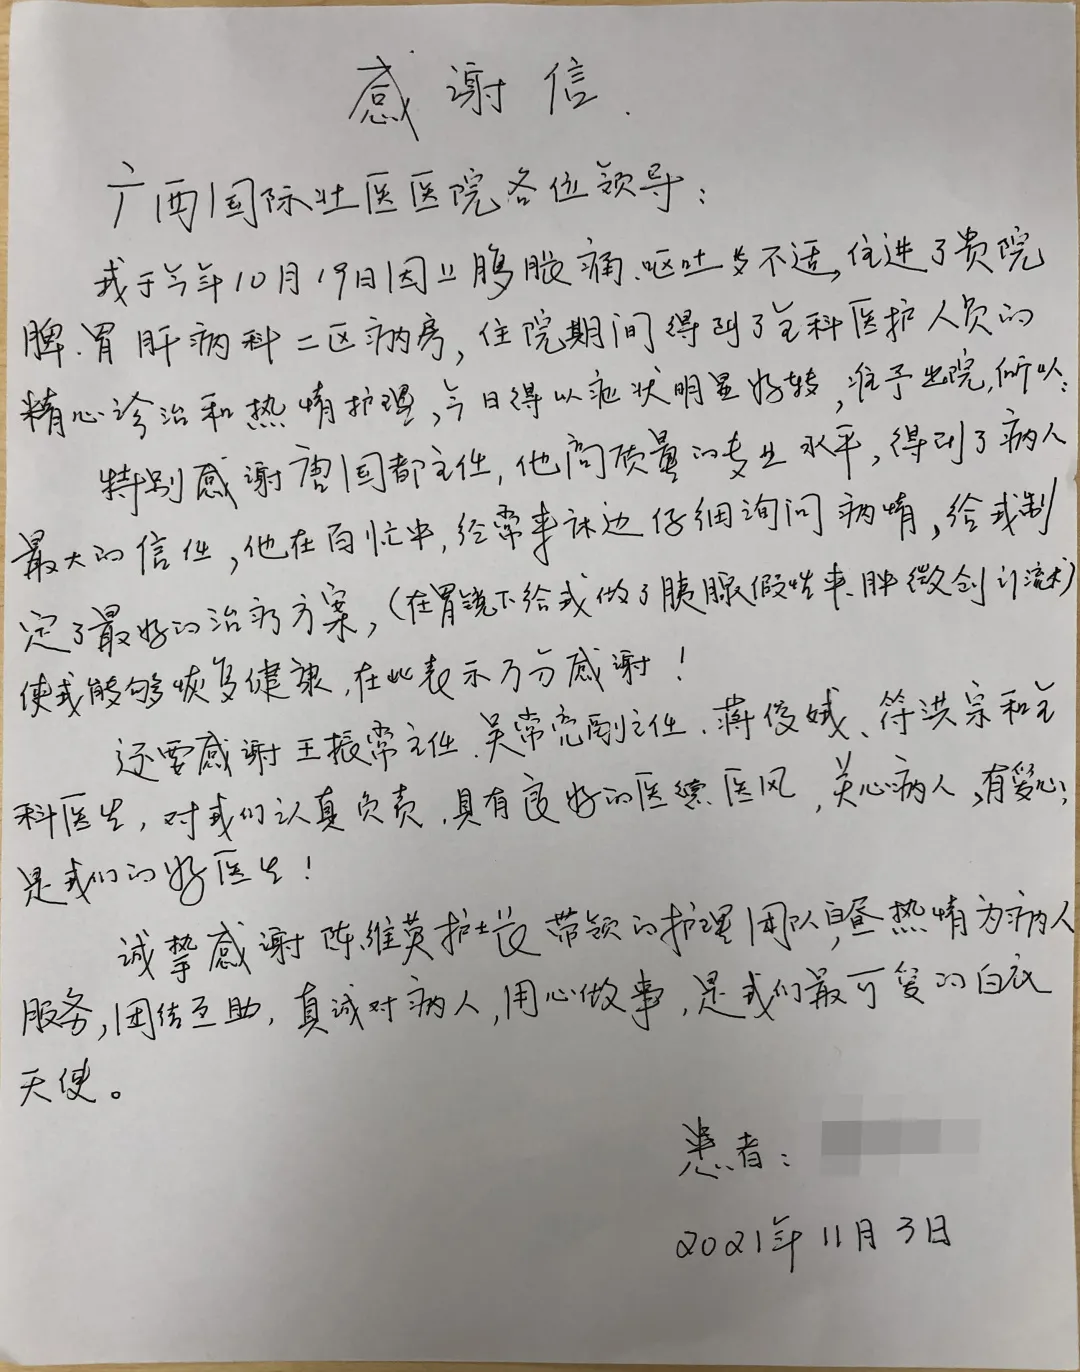 感谢信.
广西国际壮医医院各位领导:
我于今年10月19日因上腹胀痛、呕吐等不适,住进了贵院
脾.胃肝病科二区病房,住院期间得到了全科医护人员的
精心诊治和热情护理,今日得以症状明显好转,准予出院,所以:
特别感谢唐国都主任,他高质量的专业水平,得到了病人
最大的信任,他在百忙中,经常来床边仔细询问病情,给我制
定了最好的治疗方案,(在胃镜下给我做了胰腺假性囊肿微创引流术)
使我能够恢复健康,在此表示万分感谢!
还要感谢王振常主任.吴常亮副主任.蒋俊娥、符洪宗和全
科医生,对我们认真负责,具有良好的医德医风,关心病人,有爱心;
是我们的好医生!
诚挚感谢陈维英护士长带领的护理团队,昼热情为病人
服务,团结互助,真诚对病人,用心做事,是我们最可爱的白衣
天使。
患者:
2021年11月3日